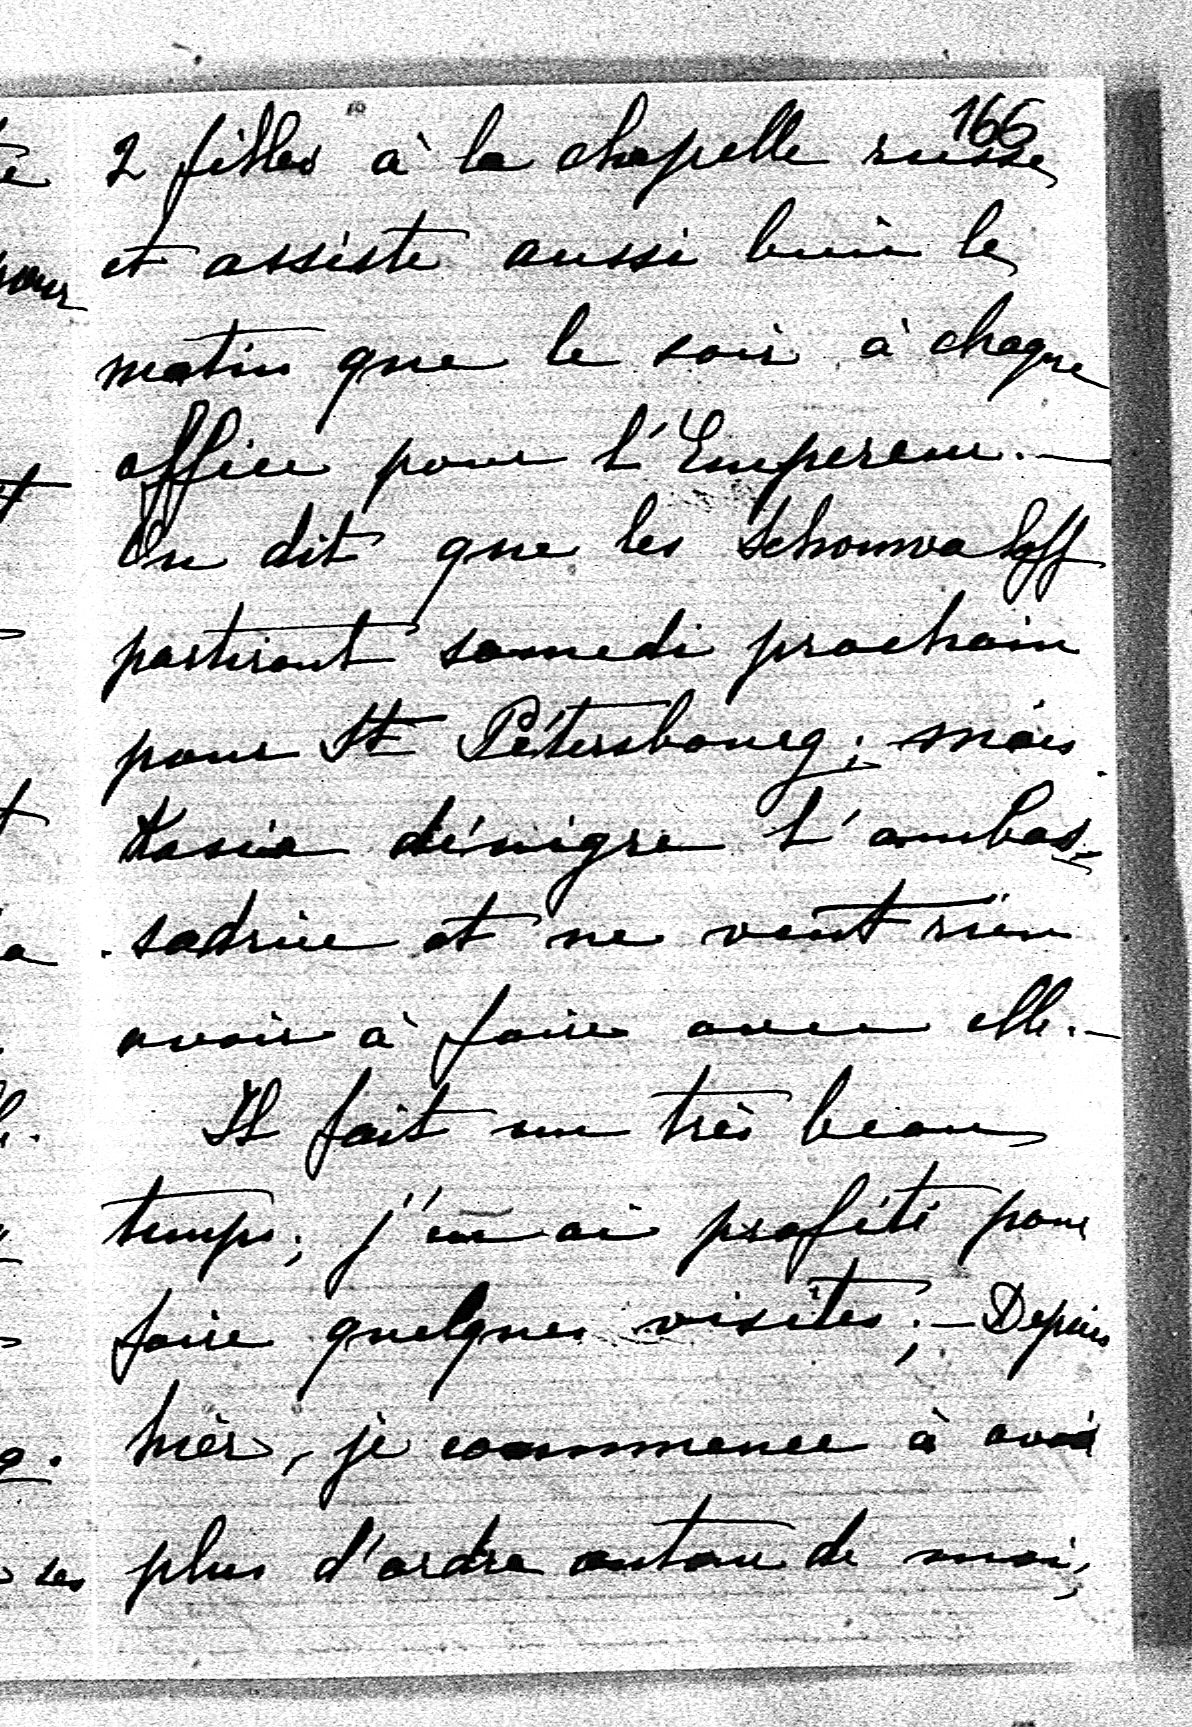 166
2 filles à la chapelle russe
et assiste aussi bien le
matin que le soir à chaque
office pour l'Empereur. —
On dit que les Schouvaloff
partiront samedi prochain
pour St Pétersbourg; mais
Kassia dénigre l'ambas-
sadrice et ne veut rien
avoir à faire avec elle. —
Il fait un très beau
temps; j'en ai profité pour
faire quelques visites; — Depuis
hier, je commence à avoir
plus d'ordre autour de moi;